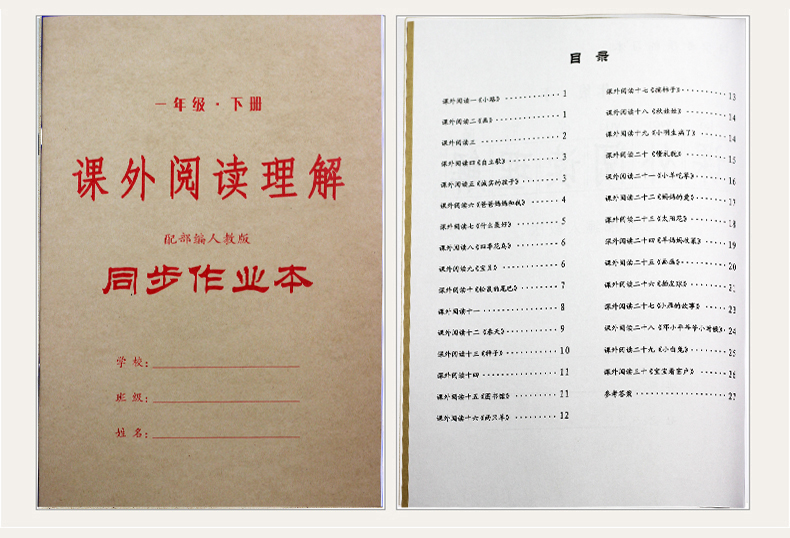 一年级·下册
课外阅读理解
配部编人教版
同步作业本
学校:
班级:
姓名:
目 录
课外阅读一《小路》 1
课外阅读二《画》 1
课外阅读三 2
课外阅读四《自立歌》 3
课外阅读五《诚实的孩子》 3
课外阅读六《爸爸妈妈和我》 4
课外阅读七《什么最好》 5
课外阅读八《四季花鸟》 6
课外阅读九《宝贝》 6
课外阅读十《松鼠的尾巴》 7
课外阅读十一 8
课外阅读十二《春天》 9
课外阅读十三《种子》 10
课外阅读十四 11
课外阅读十五《图书馆》 11
课外阅读十六《两只羊》 12
课外阅读十七《摘柿子》 13
课外阅读十八《秋娃娃》 14
课外阅读十九《小明生病了》 14
课外阅读二十《懂礼貌》 15
课外阅读二十一《小羊吃草》 16
课外阅读二十二《妈妈的爱》 17
课外阅读二十三《太阳花》 18
课外阅读二十四《羊妈妈收菜》 19
课外阅读二十五《画画》 20
课外阅读二十六《拍皮球》 21
课外阅读二十七《小雁的故事》 23
课外阅读二十八《邓小平爷爷小时候》 24
课外阅读二十九《小白兔》 25
课外阅读三十《宝宝看窗户》 26
参考答案 27